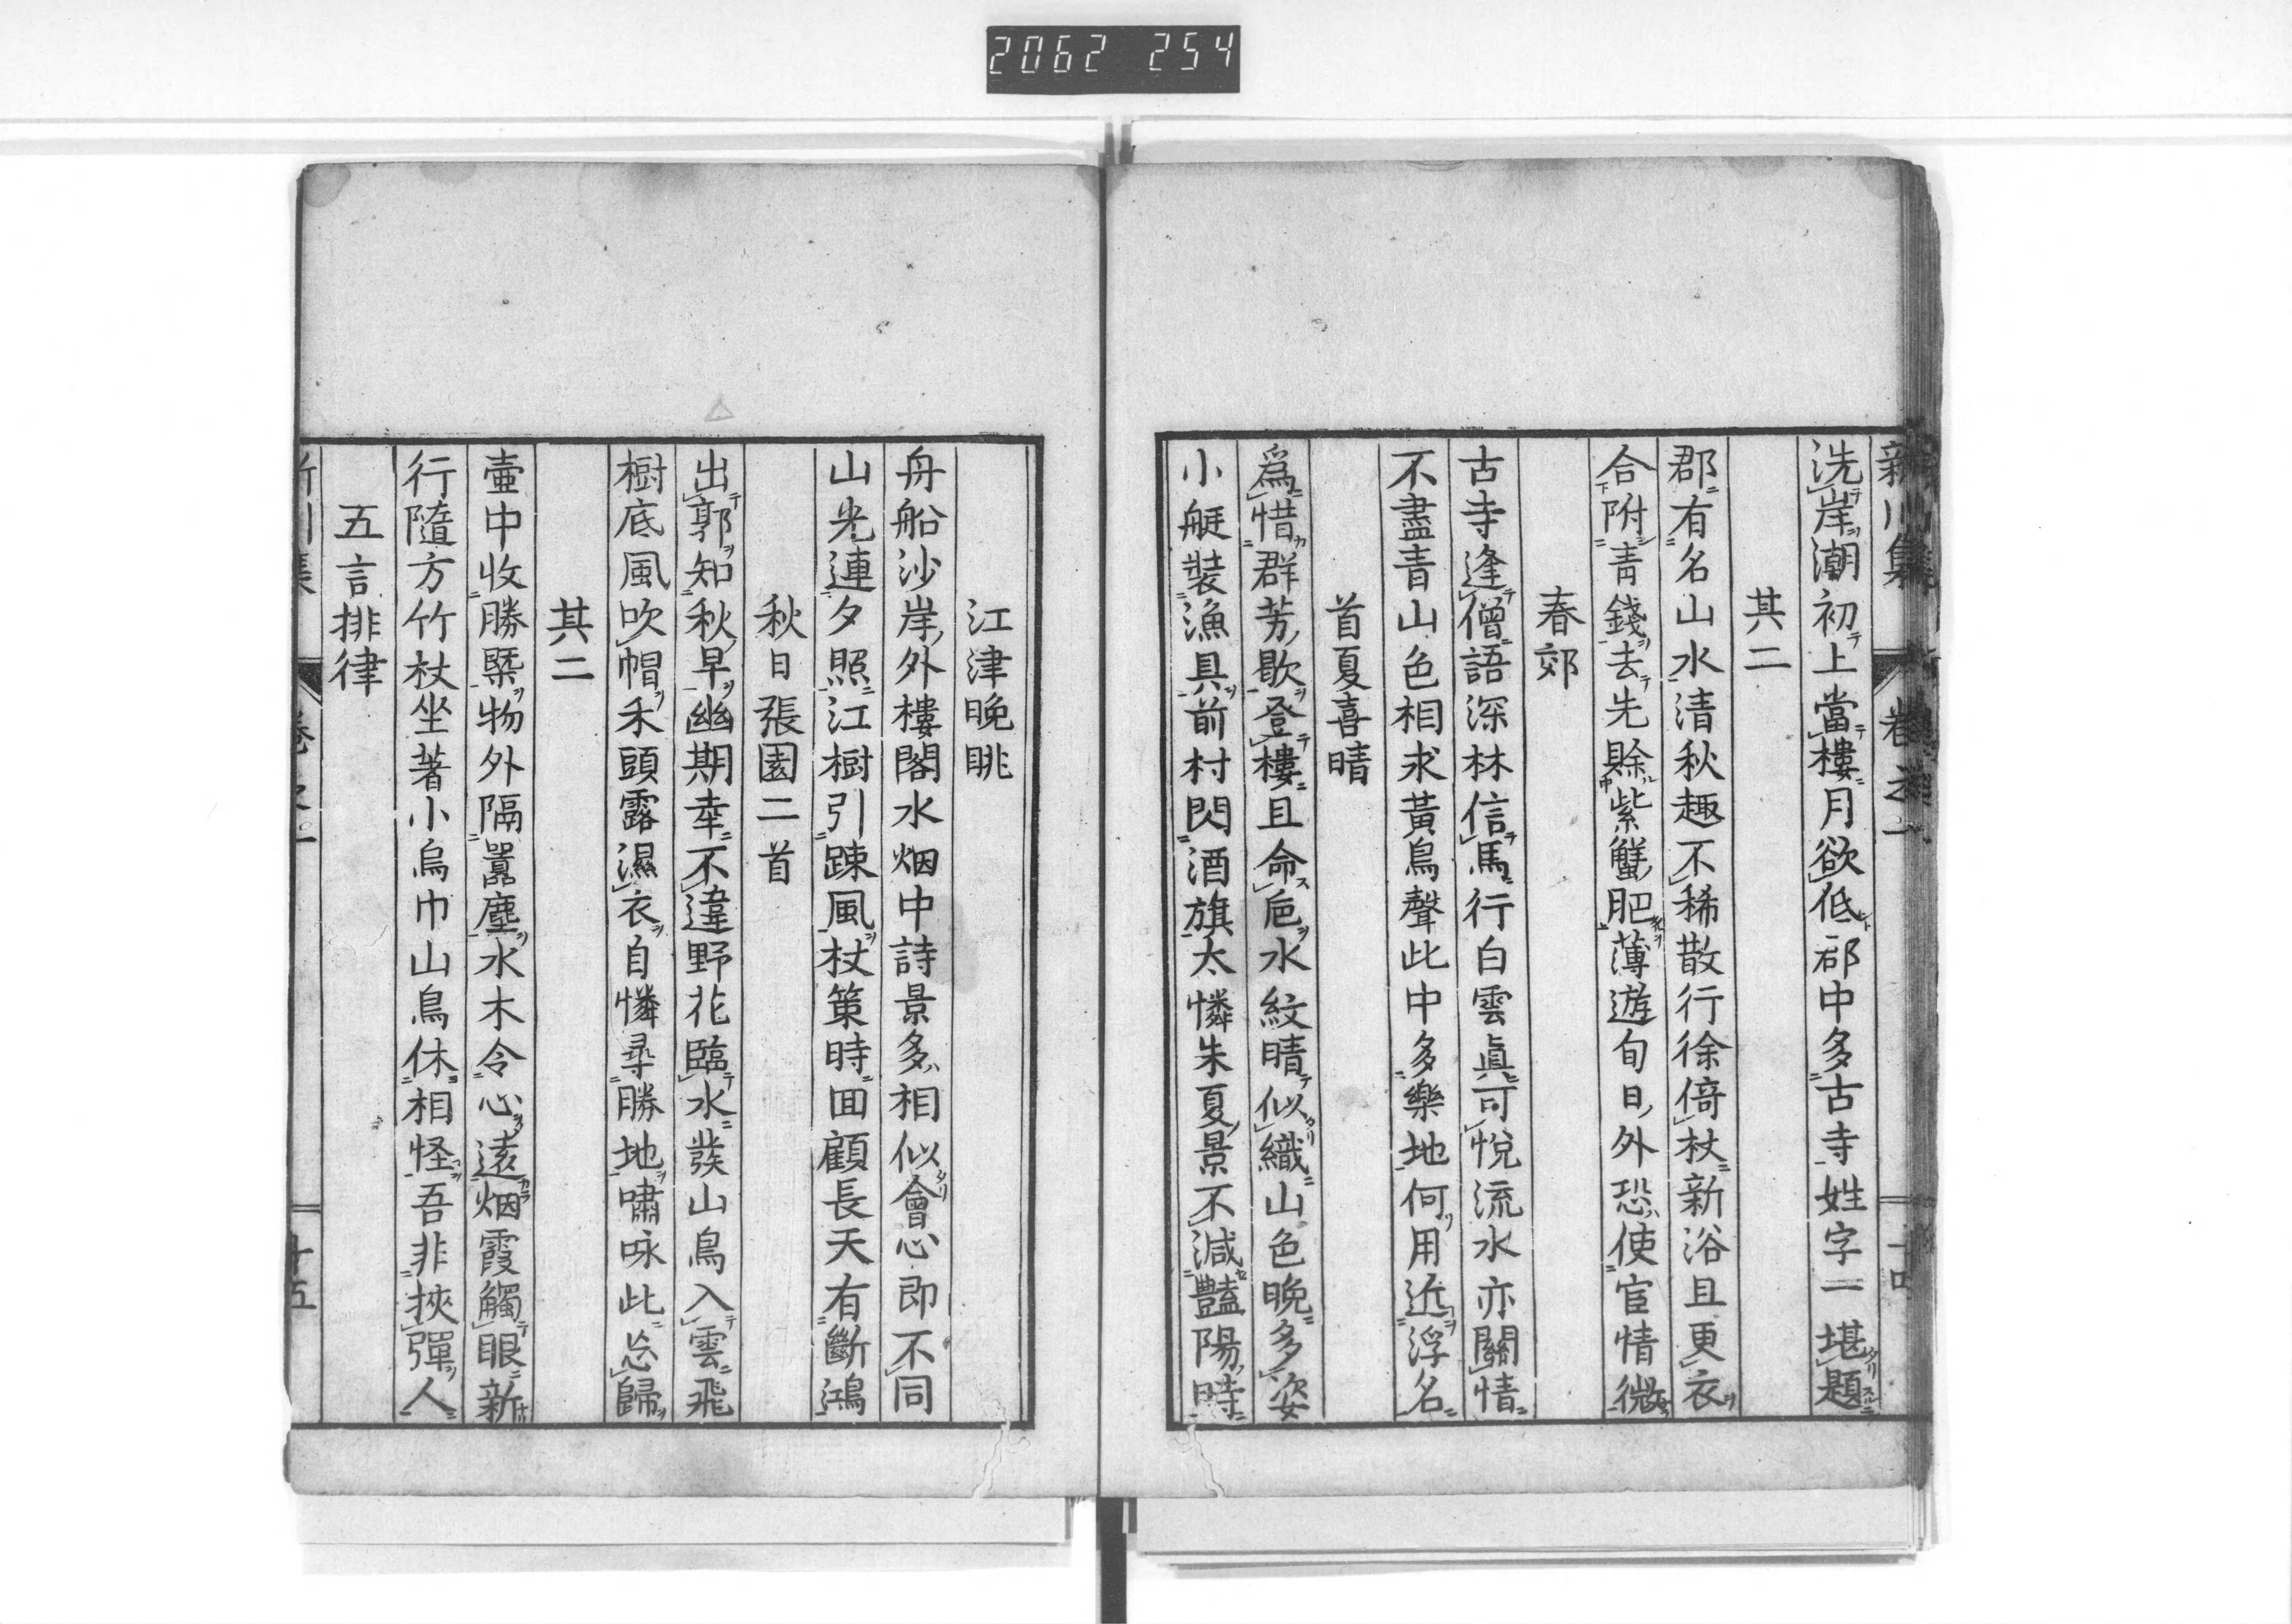 2062 254
洗岸潮初上當樓月欲低郡中多古寺姓字一堪題
其二
郡有名山水清秋趣不稀散行徐倚杖新浴且更衣
合附靑錢去先賖紫蟹肥薄遊旬日外恐使宦情微
春郊
古寺逢僧語深林信馬行白雲眞可悅流水亦關情
不盡青山色相求黃鳥聲此中多樂地何用近浮名
首夏喜晴
爲惜群芳歇登樓且命巵水紋晴似織山色晚多姿
小艇裝漁具前村閃酒旗太憐朱夏景不減豔陽時
江津晚眺
舟船沙岸外樓閣水烟中詩景多相似會心即不同
山光連夕照江樹引踈風杖策時回顧長天有斷鴻
秋日張園二首
出郭知秋早幽期幸不違野花臨水發山鳥入雲飛
樹底風吹帽禾頭露濕衣自憐尋勝地嘯咏此忘歸
其二
壷中收勝槩物外隔囂塵水木令心遠烟霞觸眼新
行隨方竹杖坐著小烏巾山鳥休相怪吾非挾彈人
五言排律
卷之一
十五